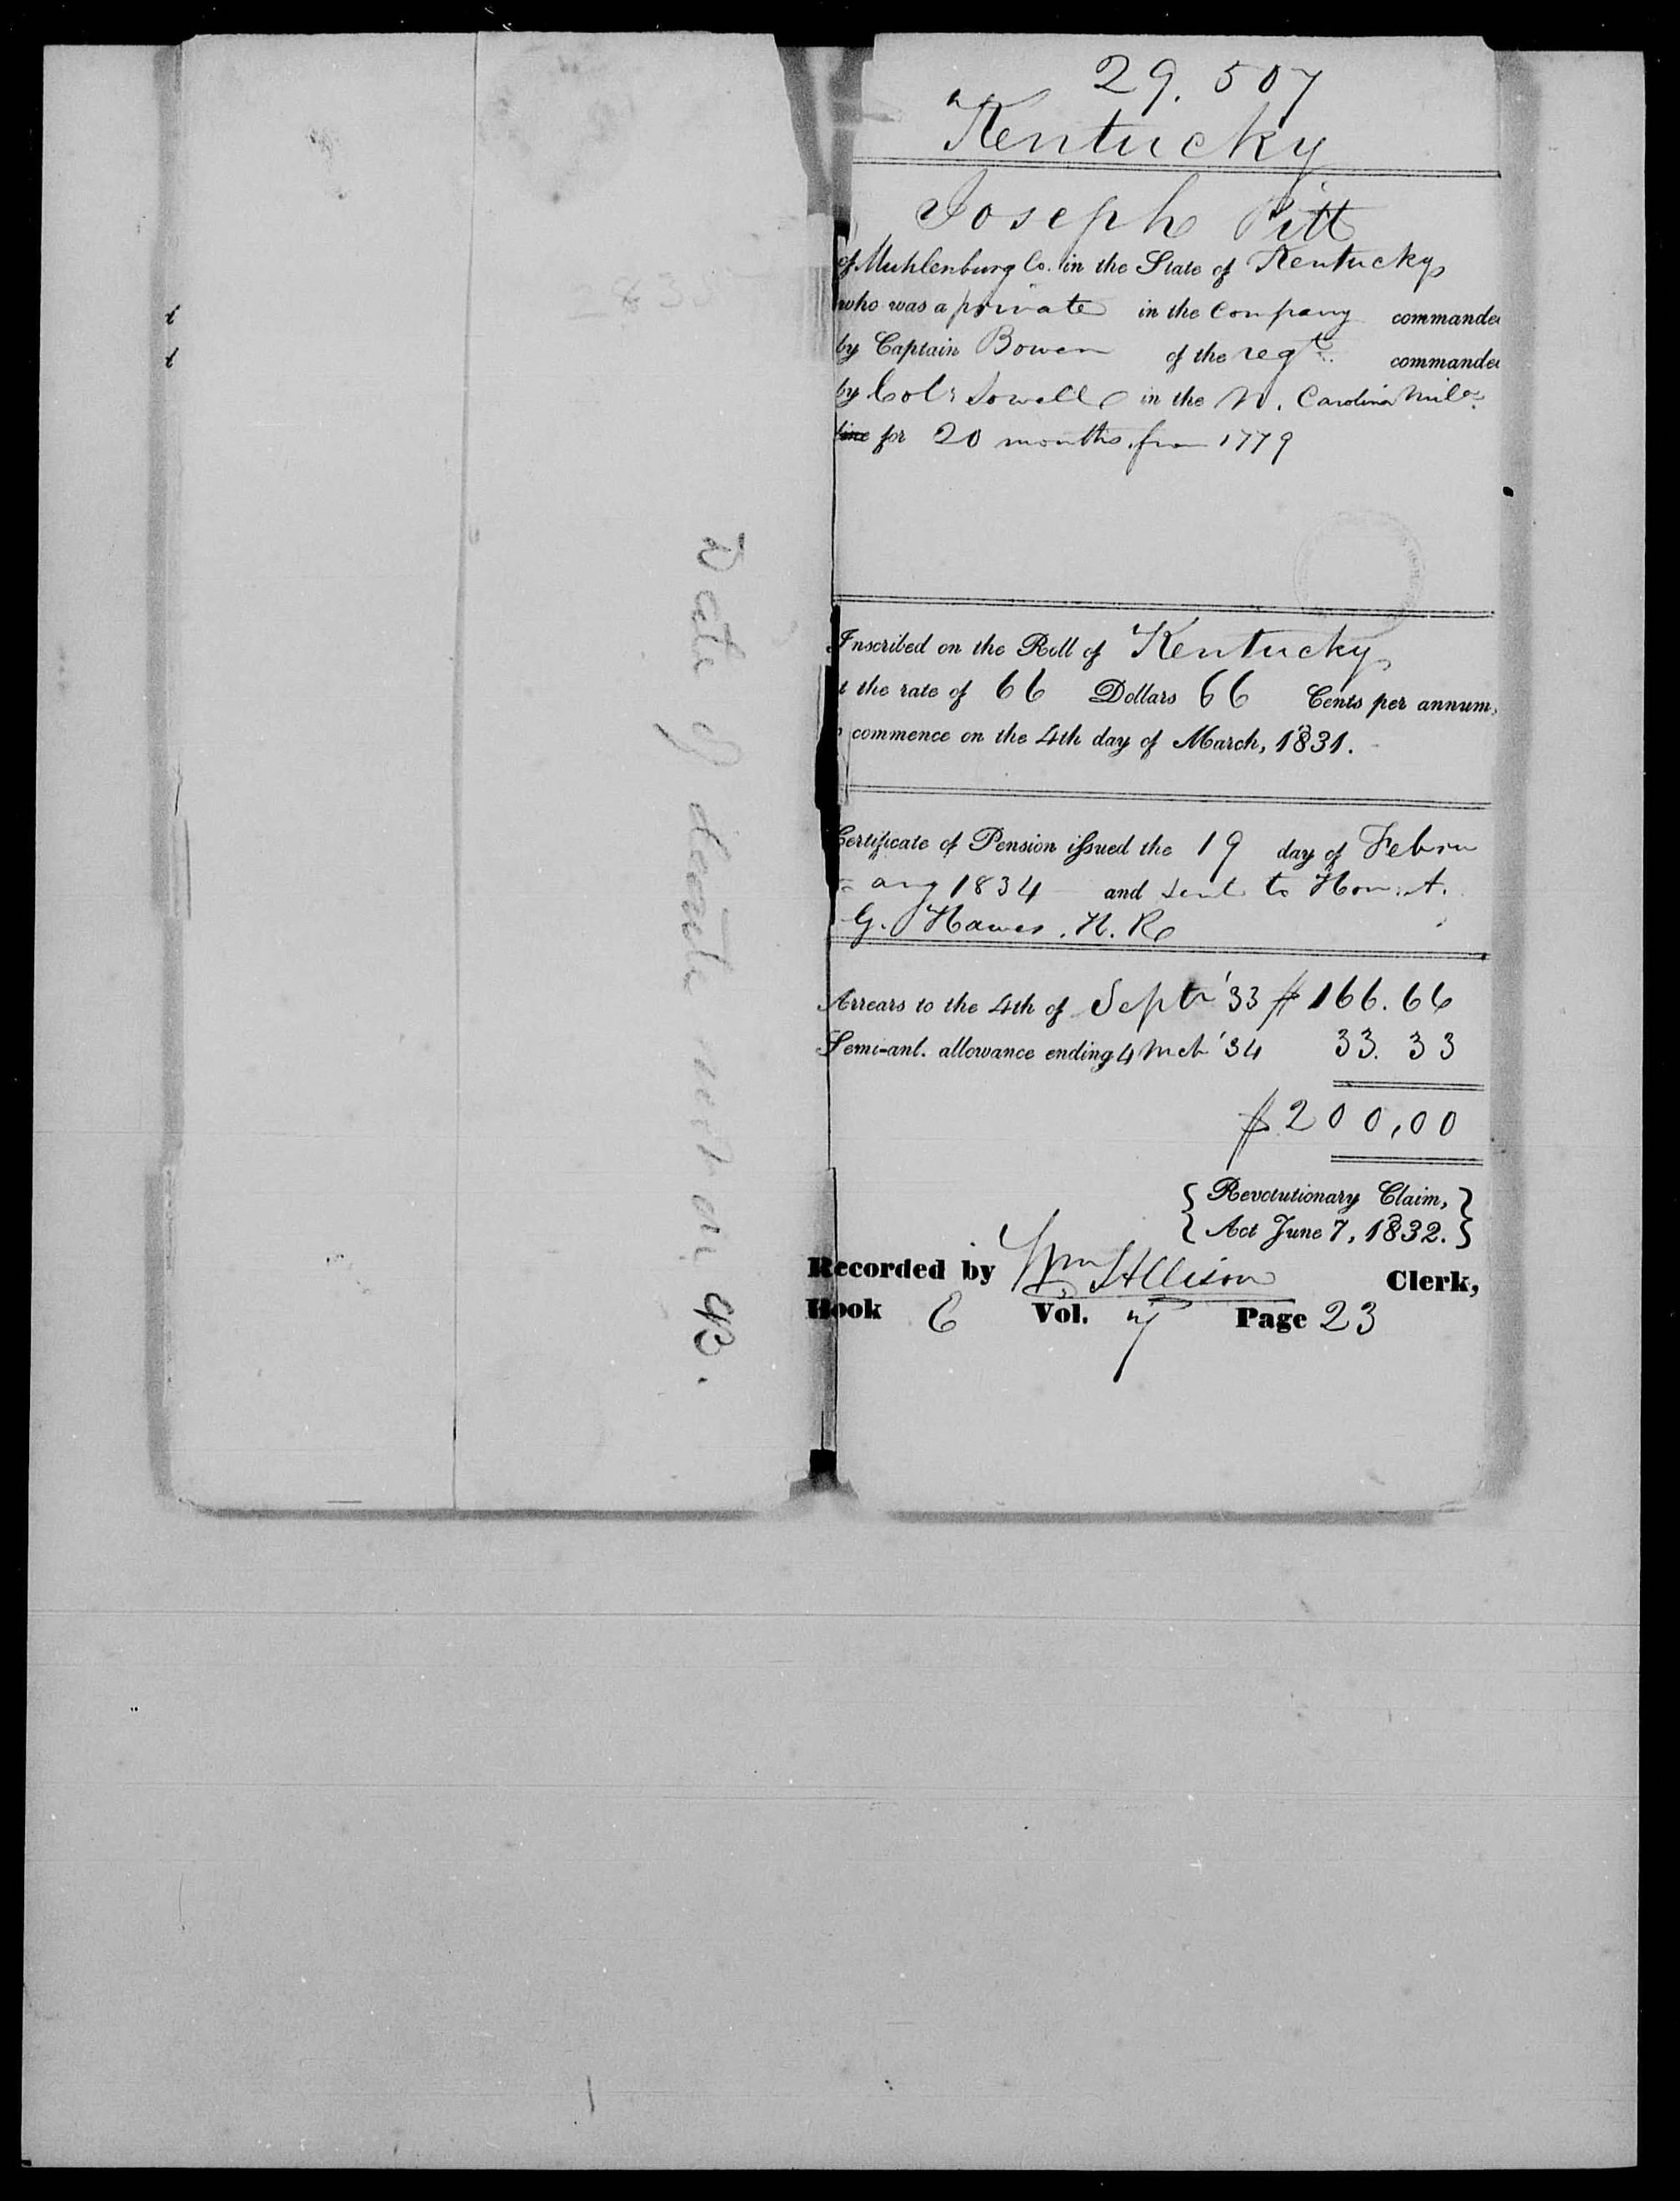 29.507
Kentucky
Joseph Pitt
of Muhlenburg Co. in the State of Kentucky
who was a private in the Company commande
by Captain Bowen of the regt. commande
by Col: Lowell in the N. Carolina Mila.
line for 20 months from 1779
Inscribed on the Roll of Kentucky
t the rate of 66 Dollars 66 Cents per annum,
commence on the 4th day of March, 1831.
Certificate of Pension issued the 19 day of Febru
= ary 1834 and sent to Hon. A.
G. Hawes. H. R
Arrears to the 4th of Septr '33 $ 166.66
Semi-anl. allowance ending 4 Mch '34 33.33
$ 200,00
Revolutionary Claim,
Act June 7, 1832.
Recorded by Wm Allison Clerk,
Book E Vol. 7 Page 23
Date of death